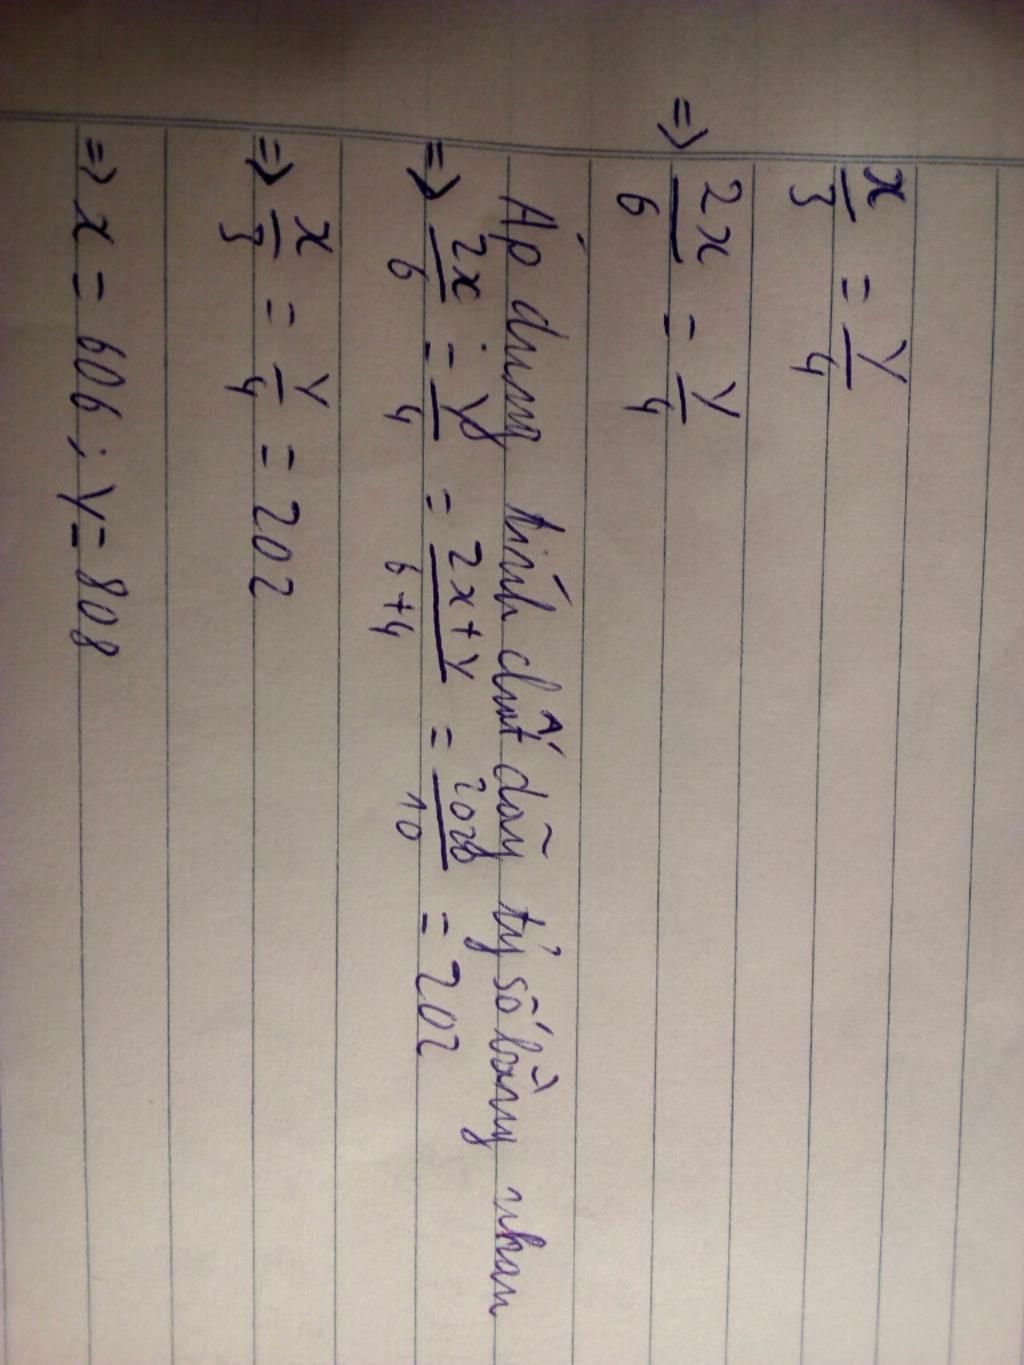 x/3 = y/4
=> 2x/6 = y/4
Áp dụng tính chất dãy tỷ số bằng nhau
=> 2x/6 = y/4 = 2x+y/6+4 = 2020/10 = 202
=> x/3 = y/4 = 202
=> x = 606 ; y = 808